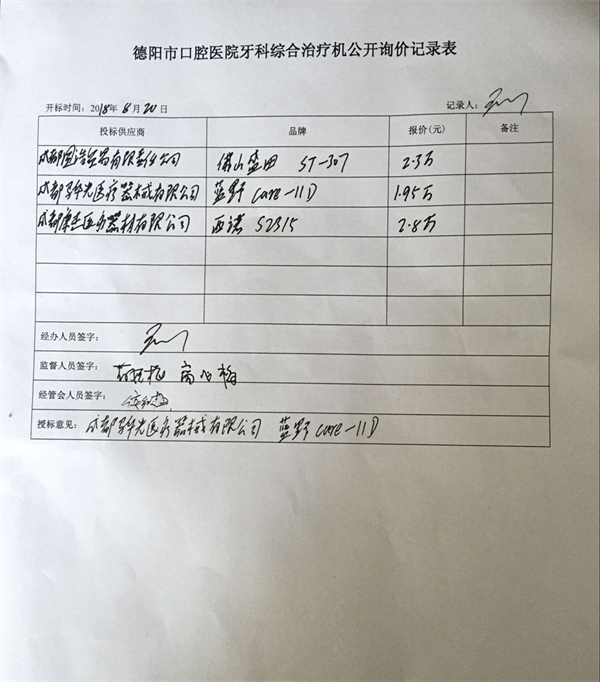 德阳市口腔医院牙科综合治疗机公开询价记录表
开标时间：2018年8月20日 记录人：
投标供应商 品牌 报价(元) 备注
成都 有限责任公司 佛山盛田 ST-307 2.3万
成都 华光医疗器械有限公司 蓝野 Care-11D 1.95万
成都康 医疗器材有限公司 西诺 S2315 2.8万
经办人员签字：
监督人员签字：
经管会人员签字：
授标意见：成都 华光医疗器械有限公司 蓝野 Care-11D